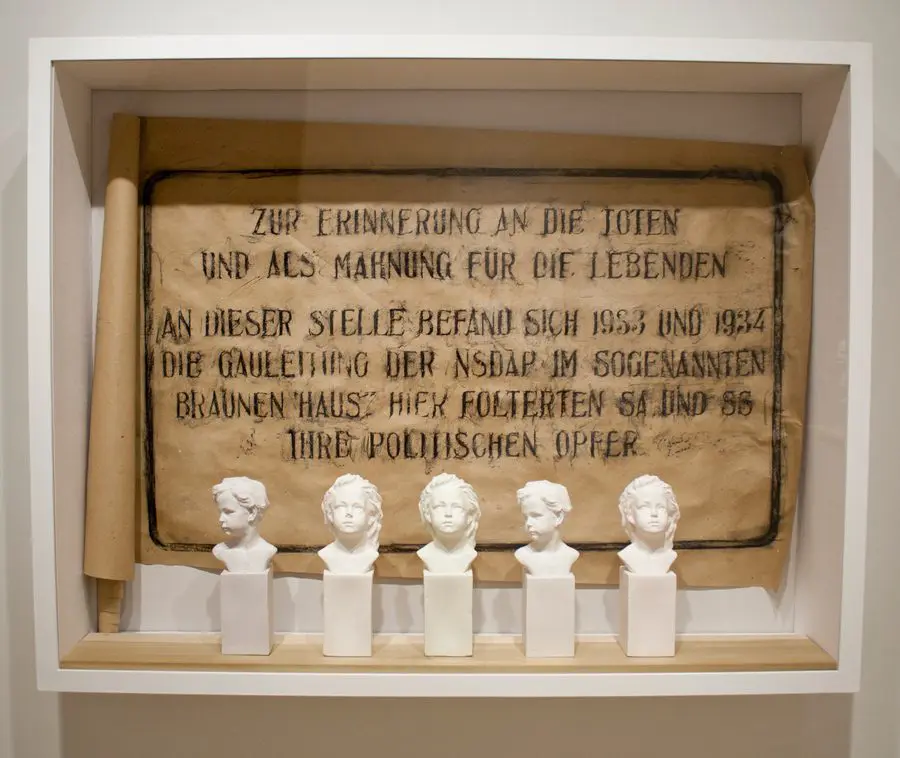 ZUR ERINNERUNG AN DIE TOTEN
UND ALS MAHNUNG FÜR DIE LEBENDEN
AN DIESER STELLE BEFAND SICH 1933 UND 1934
DIE GAULEITUNG DER NSDAP IM SOGENANNTEN
BRAUNEN "HAUS". HIER FOLTERTEN SA UND SS
IHRE POLITISCHEN OPFER